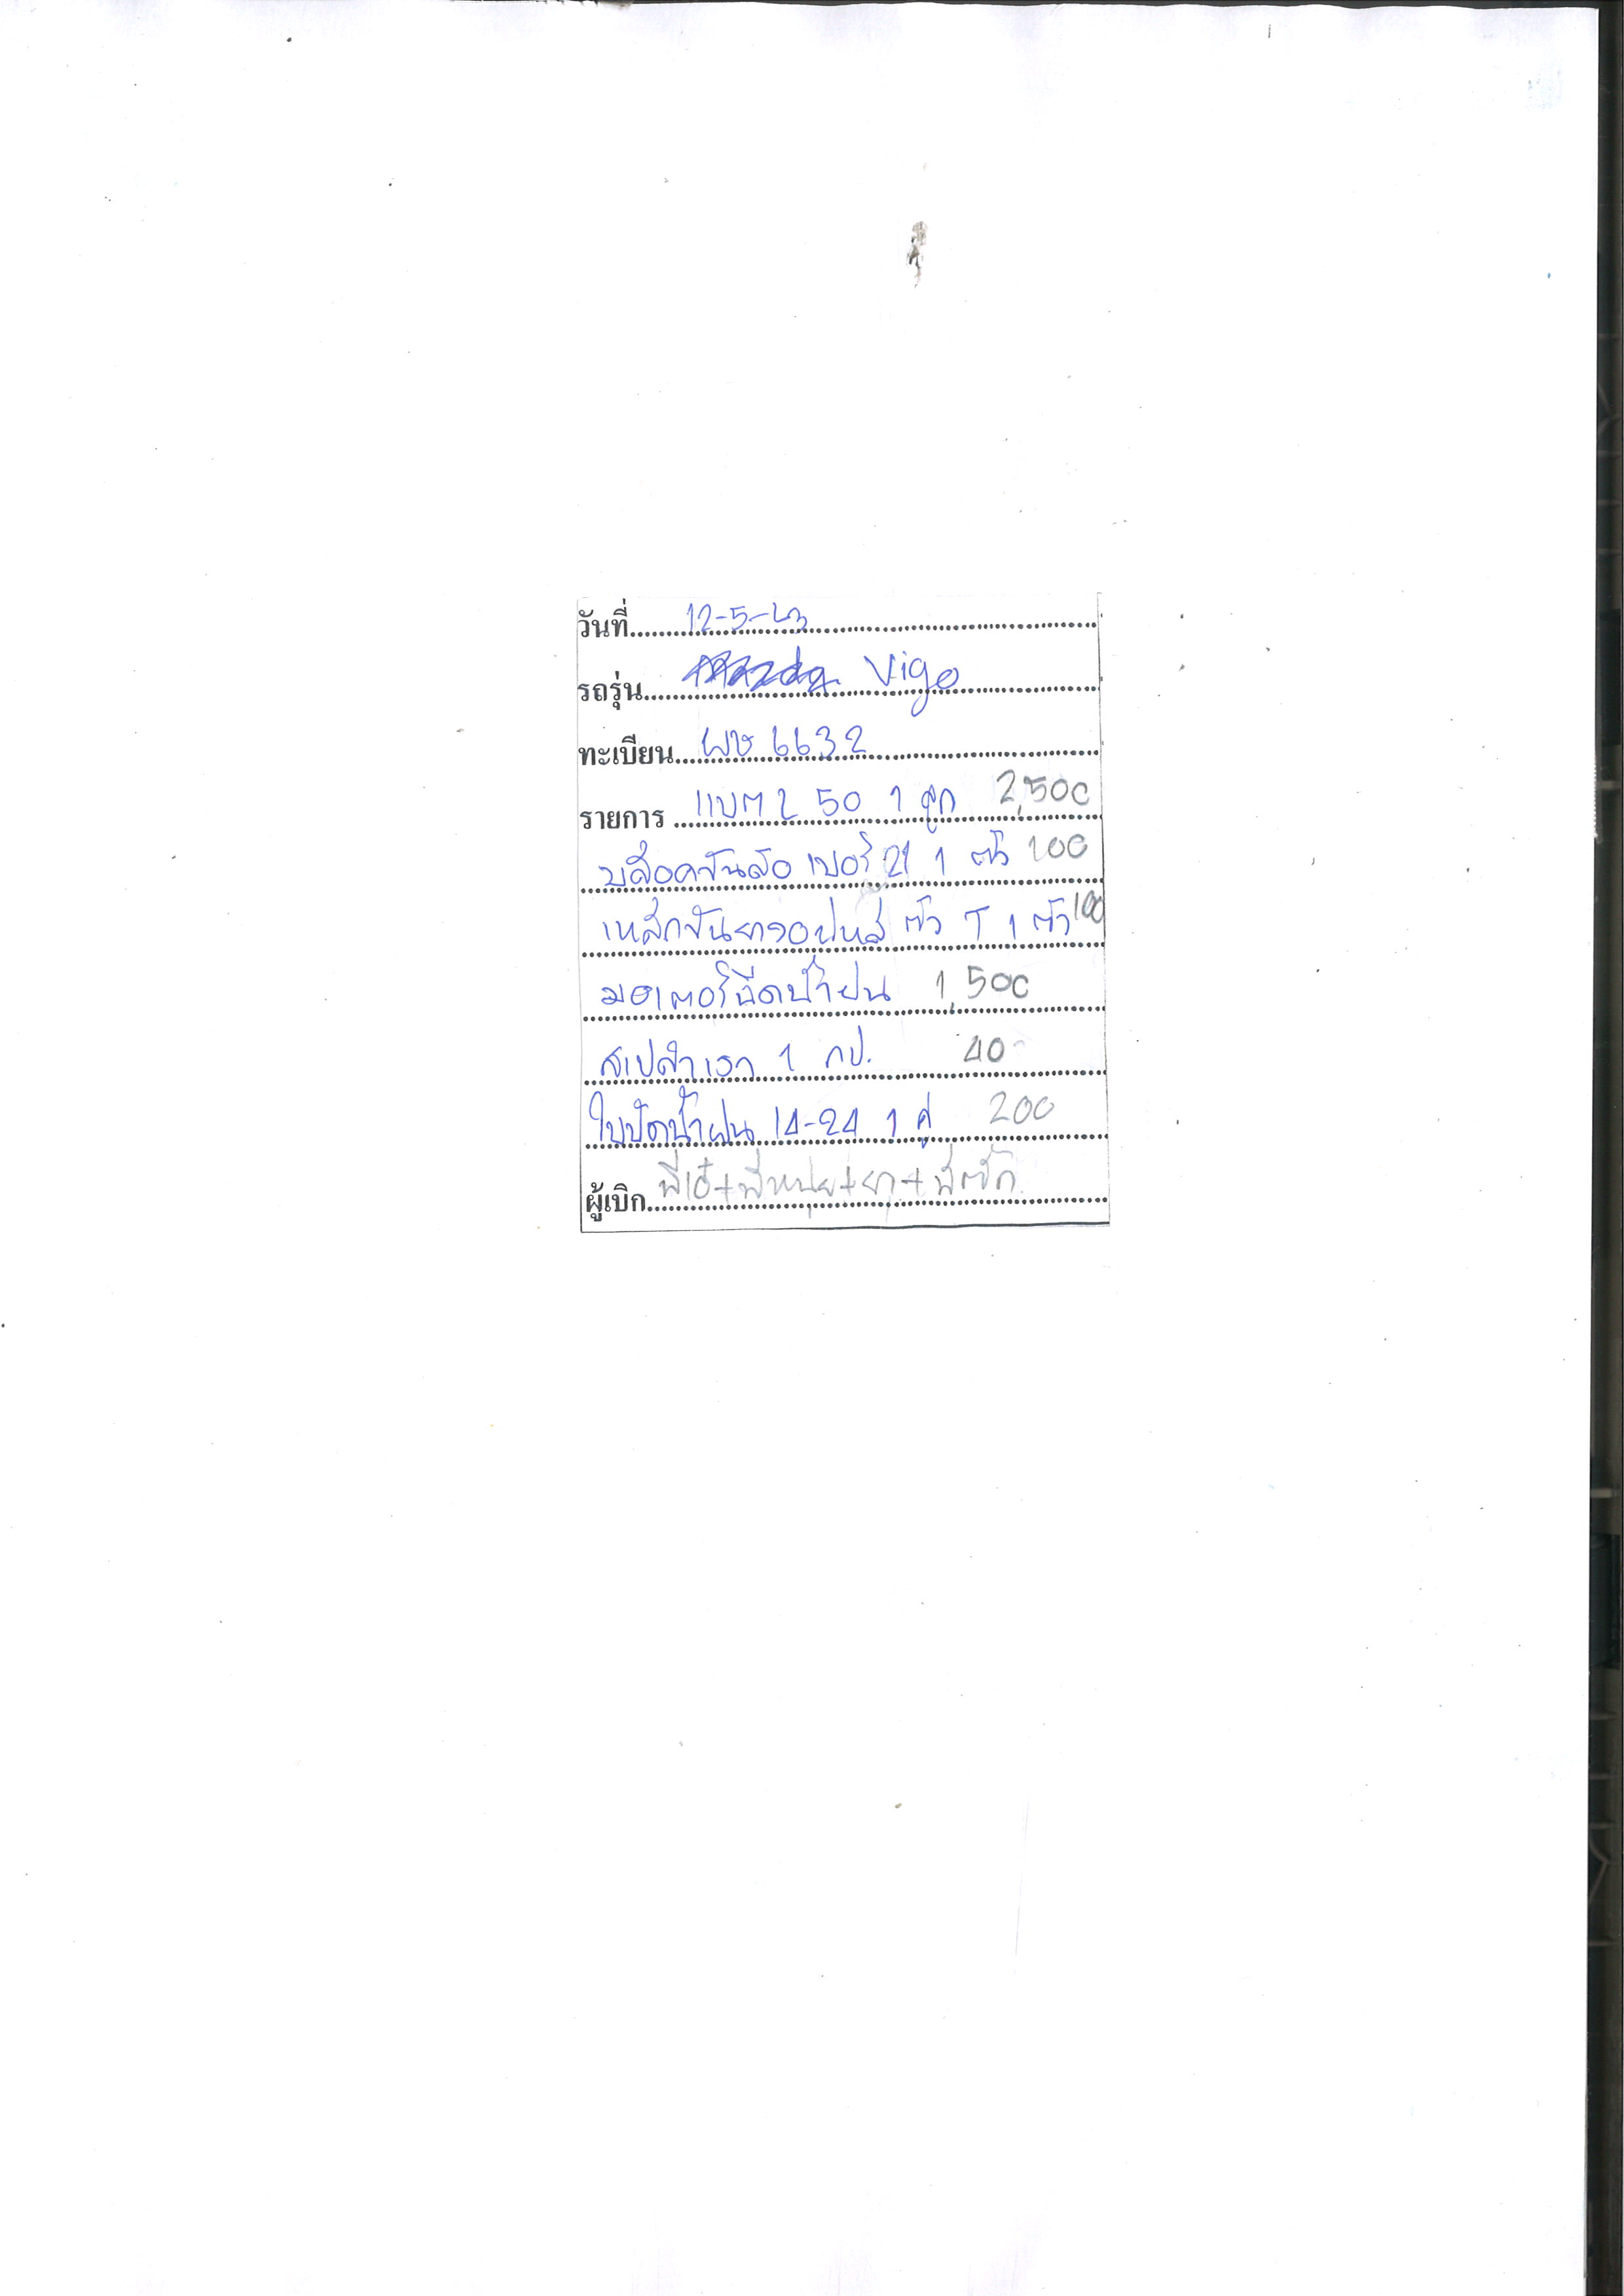 วันที่ 12-5-63
รถรุ่น Vigo
ทะเบียน ผษ 6632
รายการ แบต 2 50 1 ลูก 2,500
บล็อคขันล้อ เบอร์ 21 1 ตัว 100
เหล็กขันยางอะไหล่ ตัว T 1 ตัว 100
มอเตอร์ฉีดน้ำฝน 1,500
สเปลำเรา 1 กป. 40
ใบปัดน้ำฝน 14-24 1 คู่ 200
ผู้เบิก พี่เอ๋+พี่หน่ย+ยา+พี่